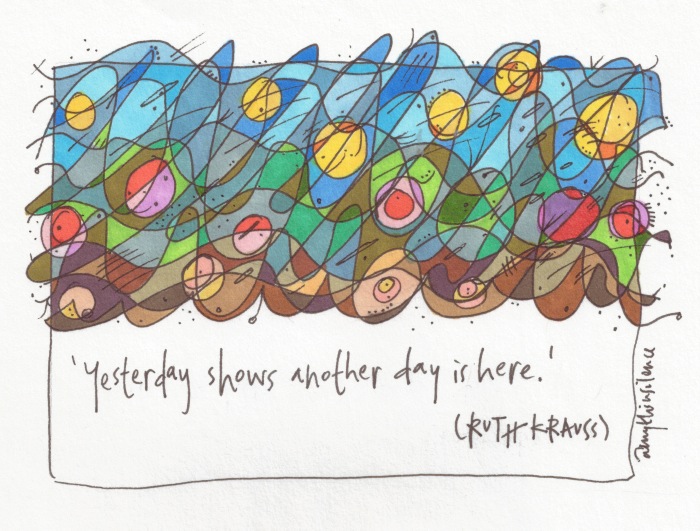 'Yesterday shows another day is here.'
(RUTH KRAUSS)